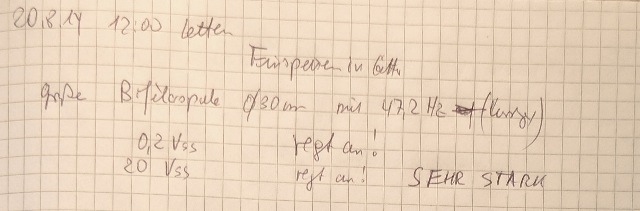 20.8.14 12:00 Letten
Einspeisen in
große Bifilarspule Ø30cm mit 47,2 Hz
0,2 Vss regt an!
20 Vss regt an! SEHR STARK